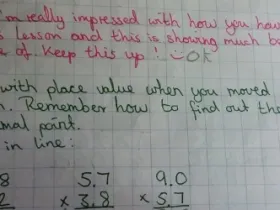 I'm really impressed with how you hav
s lesson and this is showing much b
e of. Keep this up! OK
with place value when you moved
n. Remember how to find out the
mal point.
in line:
8 5.7 9.0
2 × 3.8 × 5.7